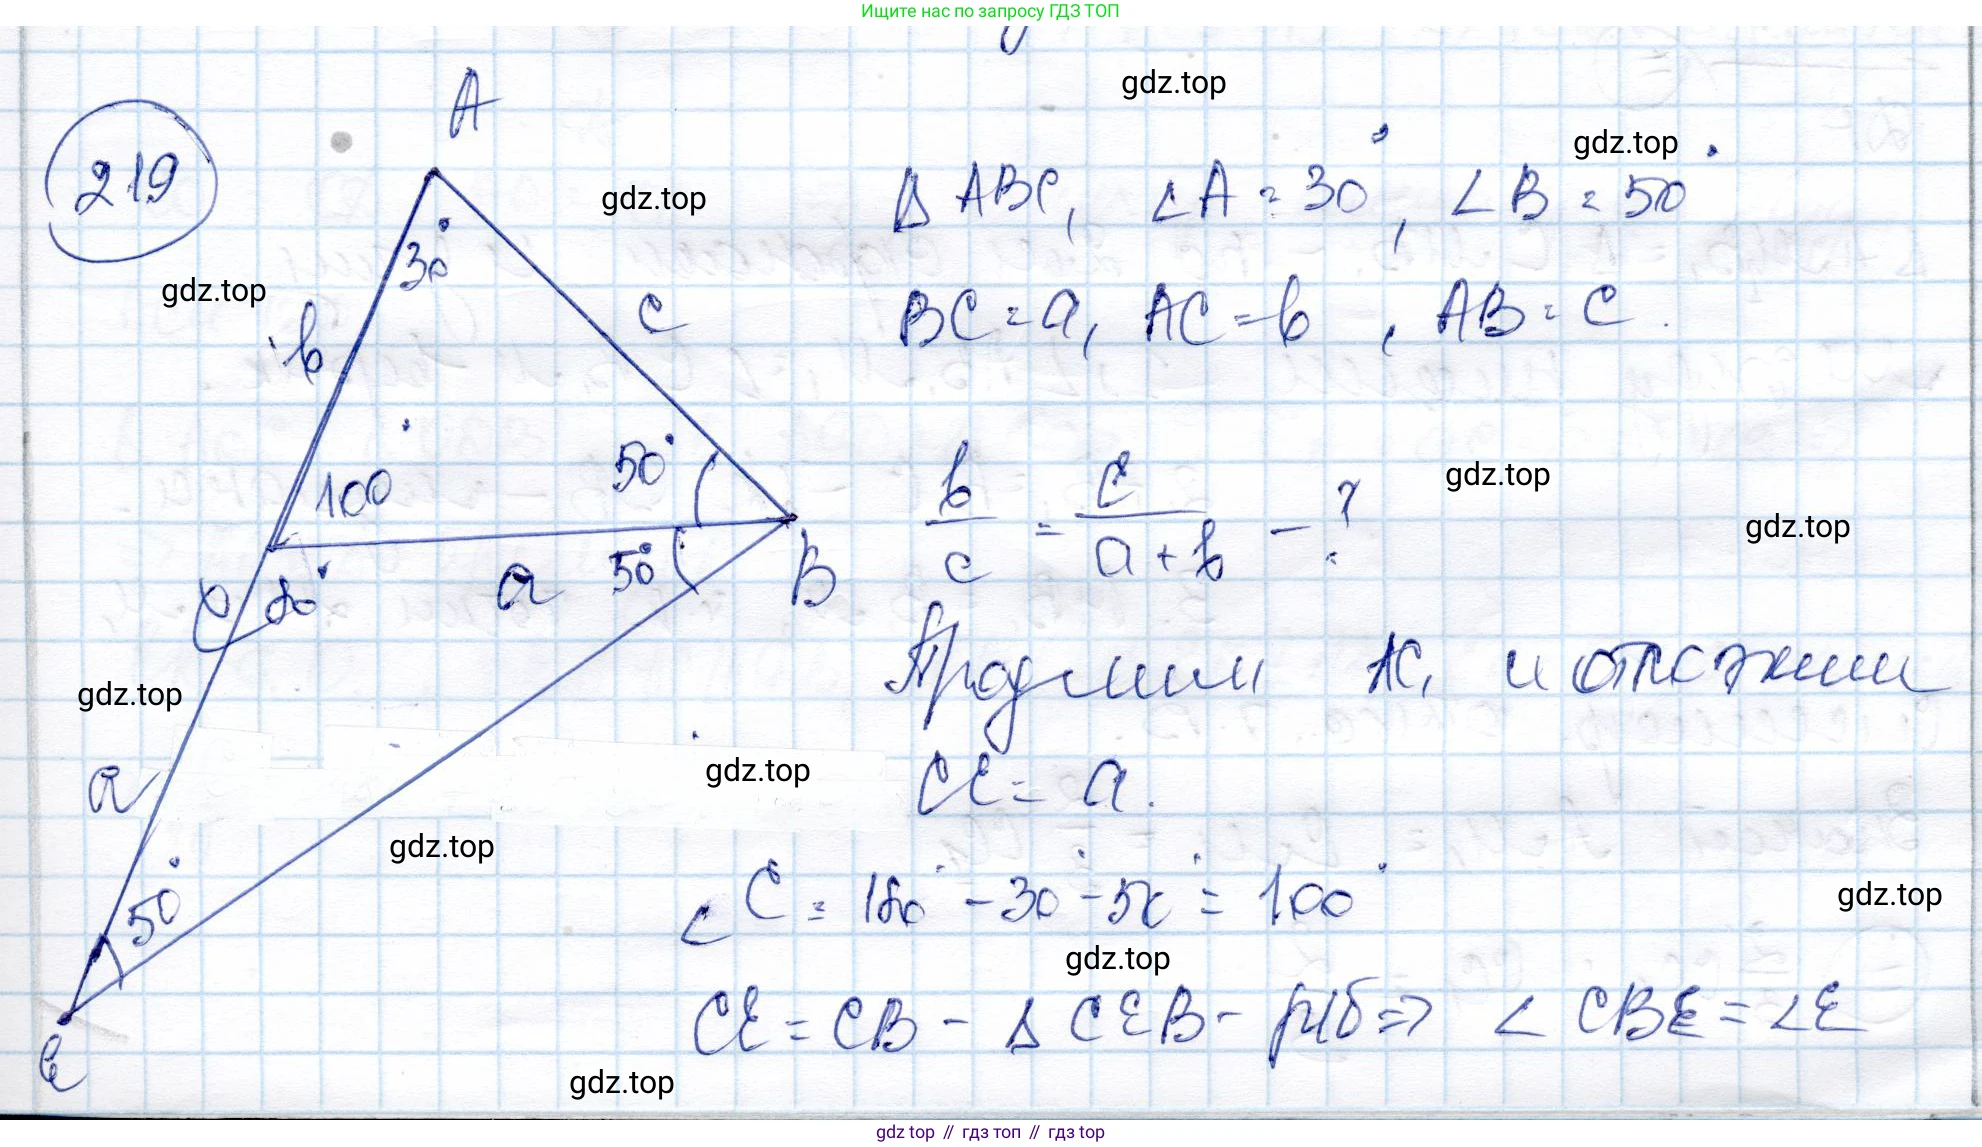 Ищите нас по запросу ГДЗ ТОП
219
A
30°
b
c
100°
50°
C
80°
a
50°
B
a
50°
E
Δ ABC, ∠A = 30°, ∠B = 50°
BC = a, AC = b, AB = c.
b/c = c/(a + b) - ?
Продлим AC, и отложим
CE = a.
∠C = 180° - 30° - 50° = 100°
CE = CB - Δ CEB - р/б => ∠ CBE = ∠E
gdz.top
gdz.top
gdz.top
gdz.top
gdz.top
gdz.top
gdz.top
gdz.top
gdz.top
gdz.top
gdz.top
gdz.top
gdz.top // гдз топ // гдз top